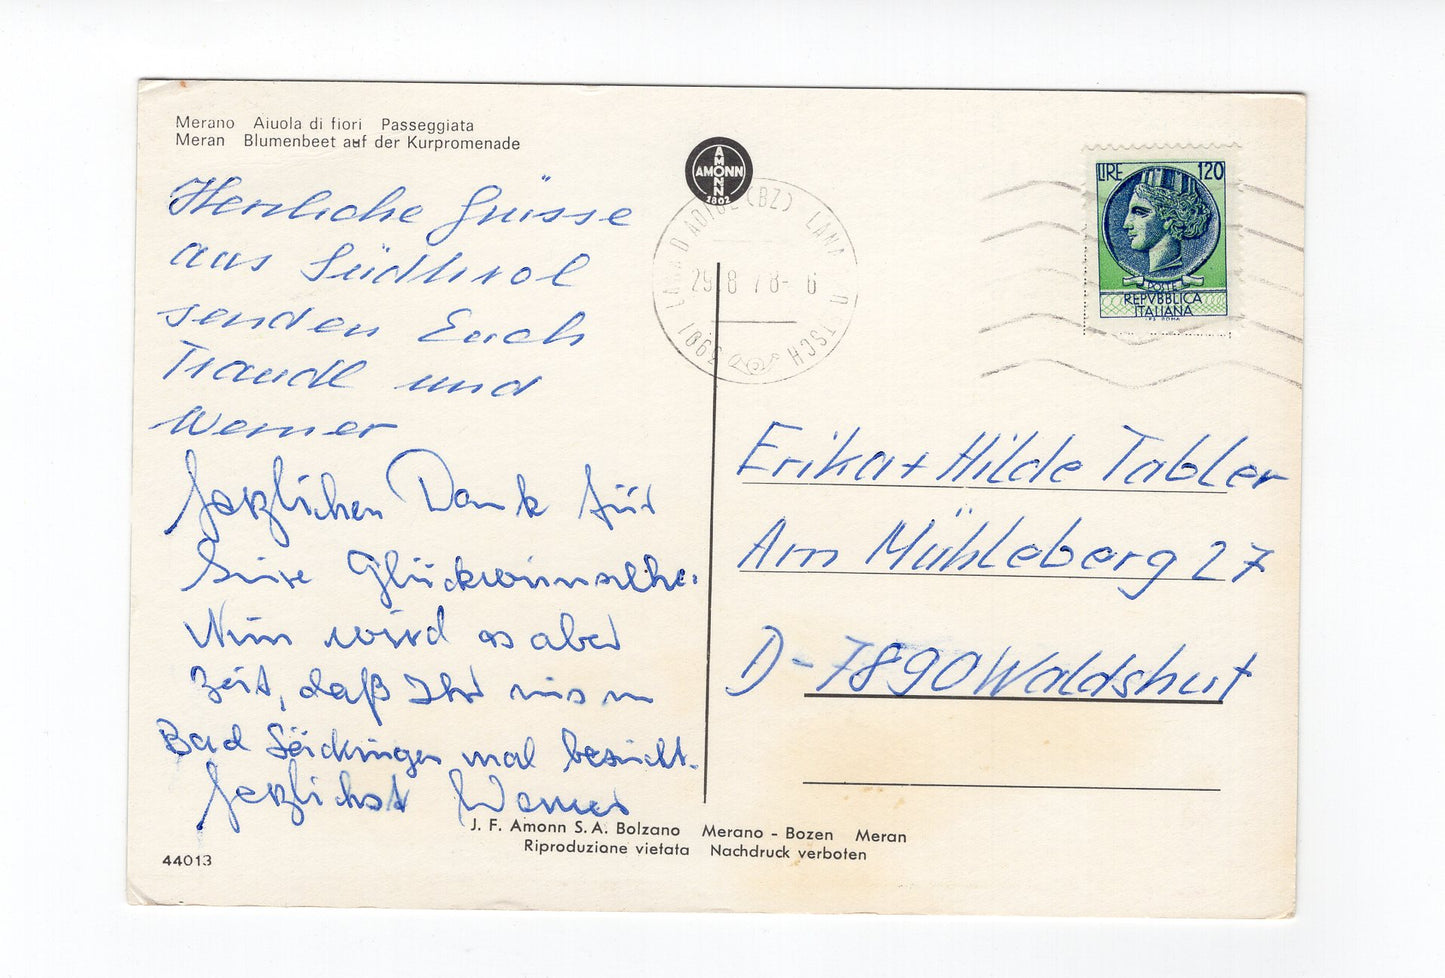 Merano Aiuola di fiori Passeggiata
Meran Blumenbeet auf der Kurpromenade
Herzliche Grüsse
aus Südtirol
senden Euch
Traudl und
Werner
Herzlichen Dank für
Eure Glückwünsche.
Nun wird es aber
Zeit, daß Ihr uns in
Bad Säckingen mal besucht.
Herzlichst Werner
AMONN
AMONN
1802
LANA D'ADIGE (BZ) LANA A. D. ETSCH
29.8.78- 6
39011
LIRE 120
POSTE
REPVBBLICA
ITALIANA
I.P.S. ROMA
Erika + Hilde Tabler
Am Mühleberg 27
D-7890 Waldshut
J. F. Amonn S.A. Bolzano Merano - Bozen Meran
Riproduzione vietata Nachdruck verboten
44013